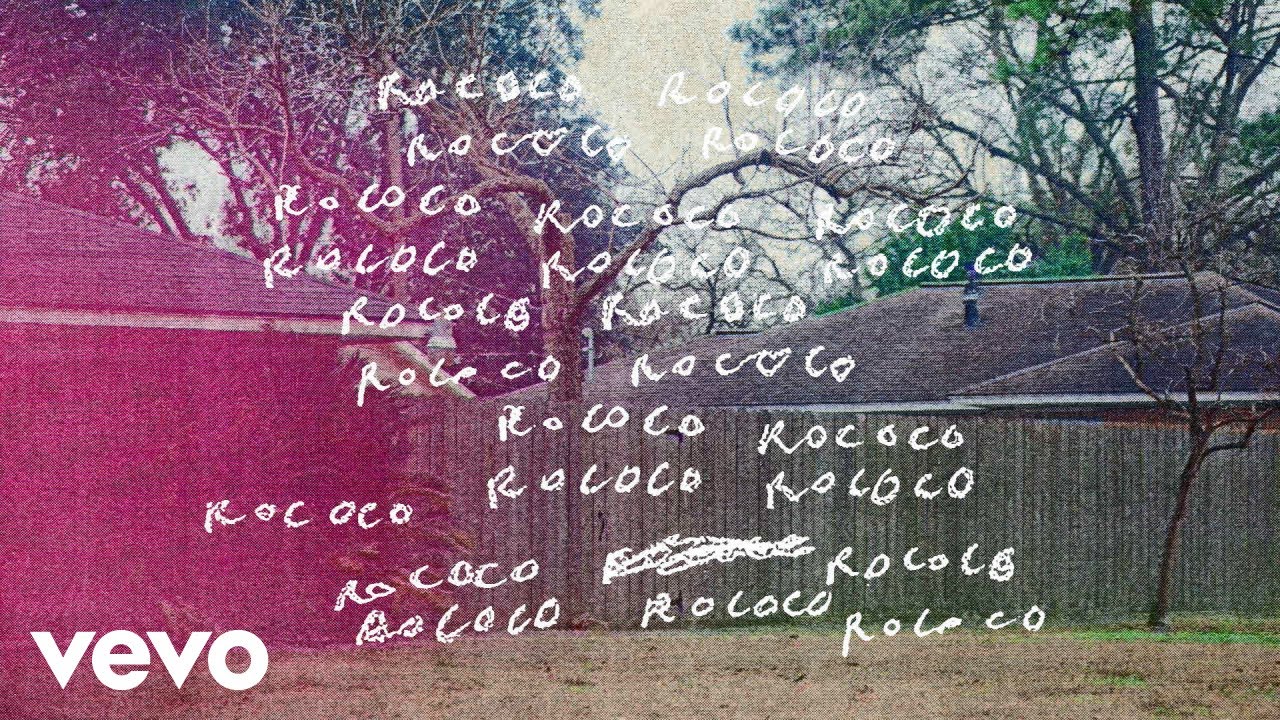 ROCOCO ROCOCO
ROCOCO ROCOCO
ROCOCO ROCOCO ROCOCO
ROCOCO ROCOCO ROCOCO
ROCOCO ROCOCO
ROCOCO ROCOCO
ROCOCO ROCOCO
ROCOCO ROCOCO
ROCOCO
ROCOCO ROCOCO
ROCOCO ROCOCO ROCOCO
vevo